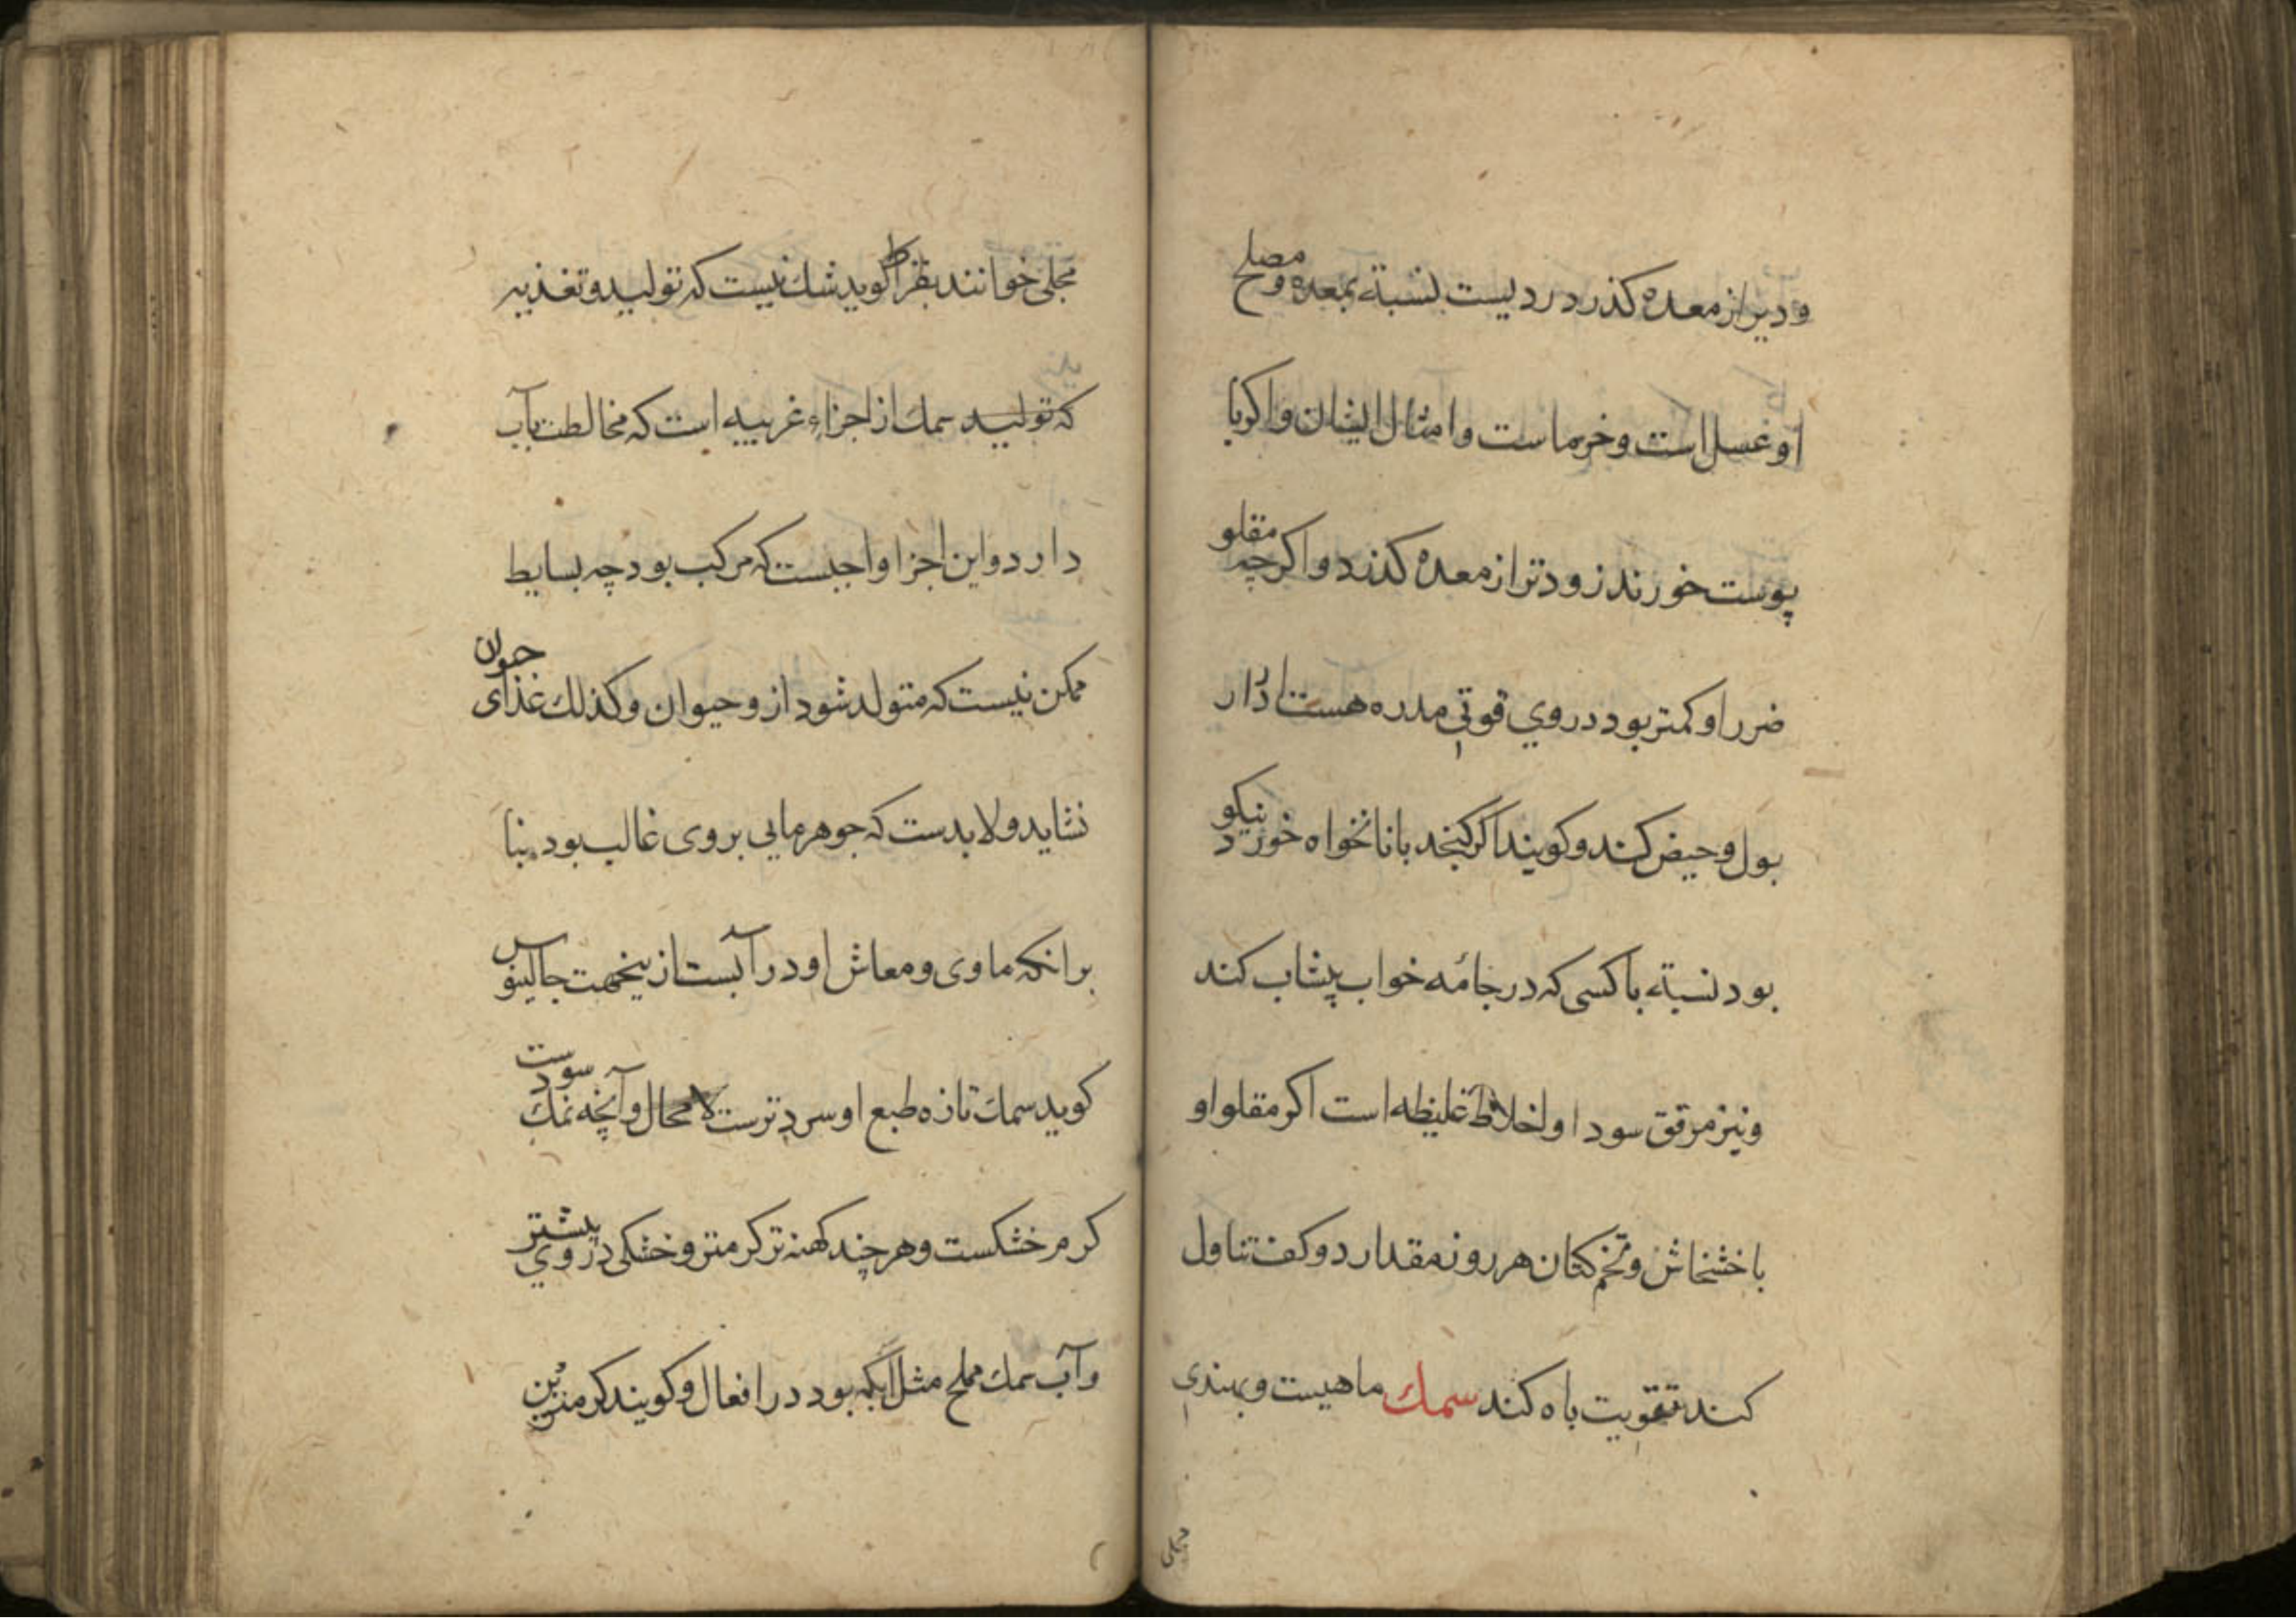 و دیر از معده كذرد ردیست نسبته بمعده و مصلح
او عسل است و خرماست و امثال ایشان و اكر با
پوست خورند زودتر از معده كذرد و اكرچه مقلو
ضرر او كمتر بود در وي قوتی مدره هست ادرار
بول و حیض كند و كویند اكر كنجد با نانخواه خورد نیكو
بود نسبته با كسی كه در جامٔه خواب پیشاب كند
و نیز مرقق سودا و اخلاط غلیظه است اكر مقلو او
با خشخاش و تخم كتان هر روز مقدار دو كف تناول
كند تقویت باه كند سمك ماهیست و بهندی
مجلی
مجلی خوانند بقراط كوید شك نیست كه تولید و تغذیه
كه تولید سمك از اجزاء غریبیه است كه مخالطت بآب
دارد و این اجزا واجبست كه مركب بود چه بسایط
ممكن نیست كه متولد شود از و حیوان و كذلك غذای حیوان
نشاید و لابدست كه جوهر مایی بر وی غالب بود بنا
برانكه ماوی و معاش او در آبست از ینجهت جالینوس
كوید سمك تازه طبع او سرد ترست لا محال و آنچه نمك سودست
كرم خشكست و هر چند كهنه تر كرمتر و خشكی در وي بیشتر
و آب سمك مملح مثل آبكمه بود در افعال و كویند كرمترین